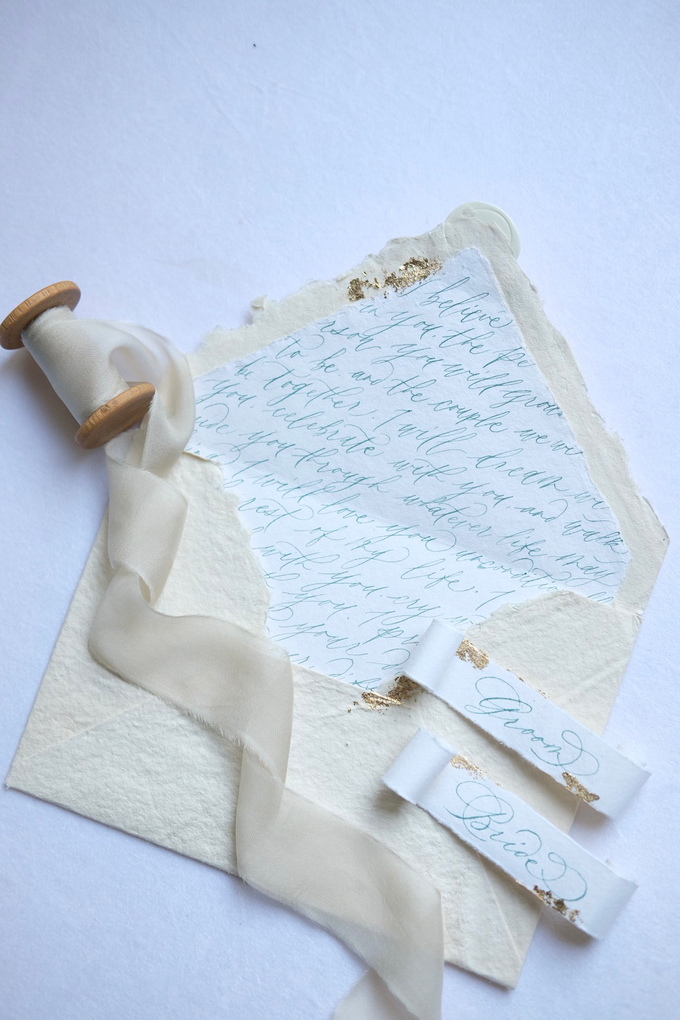 believe
in you, the pe
rson you will grow
to be and the couple we wi
be together. I will dream wi
you celebrate with you and walk
ide you through whatever life may
I would love you
rest of my life. I
with you, cry
you.
your
Groom
Bride